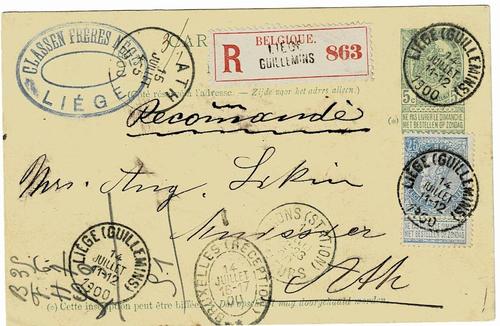 CLASSEN FRÈRES NÉGTS
LIÈGE
ATH
15
JUILLET
CAR
BELGIQUE.
R
LIÉGE
GUILLEMINS
863
LIÉGE (GUILLEMINS)
14
JUILLET
11-12
1900
5c
NE PAS LIVRER LE DIMANCHE.
NIET BESTELLEN OP ZONDAG.
(Côté réservé à l'adresse. — Zijde voor het adres alleen.)
(*)
Recomandé
25
LIÉGE (GUILLEMINS)
14
JUILLET
11-12
1900
Mrs. Aug.
Ath
LIÉGE (GUILLEMINS)
14
JUILLET
11-12
1900
BRUXELLES (RÉCEPTION)
14
JUILLET
16-17
MONS (STATION)
(*) Cette inscription peut être biffée. — Dit opschrift mag doorgehaald worden.